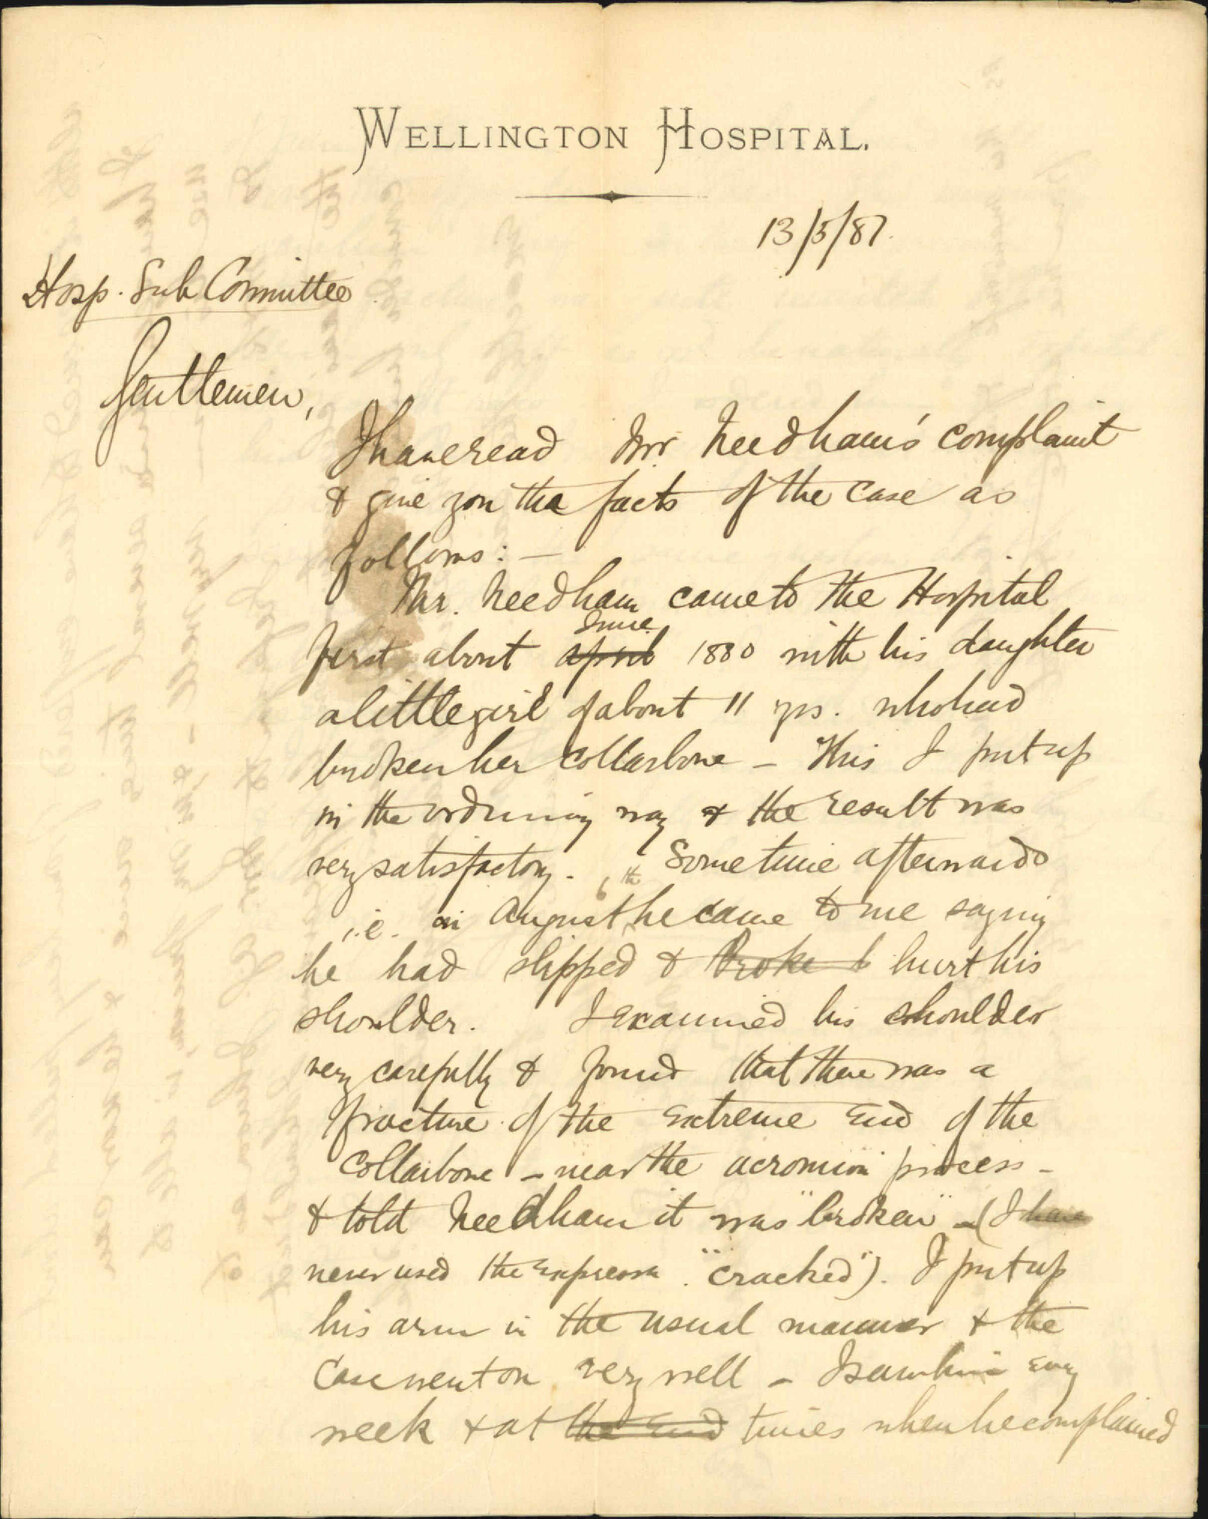 WELLINGTON HOSPITAL.
13/5/87.
Hosp. Sub Committee
Gentlemen,
I have read Mr Needham's complaint
& give you the facts of the case as
follows: —
Mr. Needham came to the Hospital
June
first about april 1880 with his daughter
a little girl of about 11 yrs. who had
broken her collarbone – This I put up
in the ordinary way & the result was
very satisfactory. Sometime afterwards
6th
i.e. in August he came to me saying
he had slipped & broke h hurt his
shoulder. I examined his shoulder
very carefully & found that there was a
fracture of the extreme end of the
collarbone – near the acromion process –
& told Needham it was "broken" – (I have
never used the expression "cracked"). I put up
his arm in the usual manner & the
case went on very well – I saw him every
week & at the end times when he complained